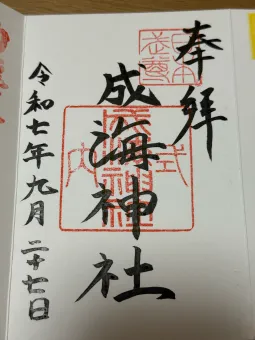 奉拝
成海神社
令和七年九月二十七日
式内
成海神社